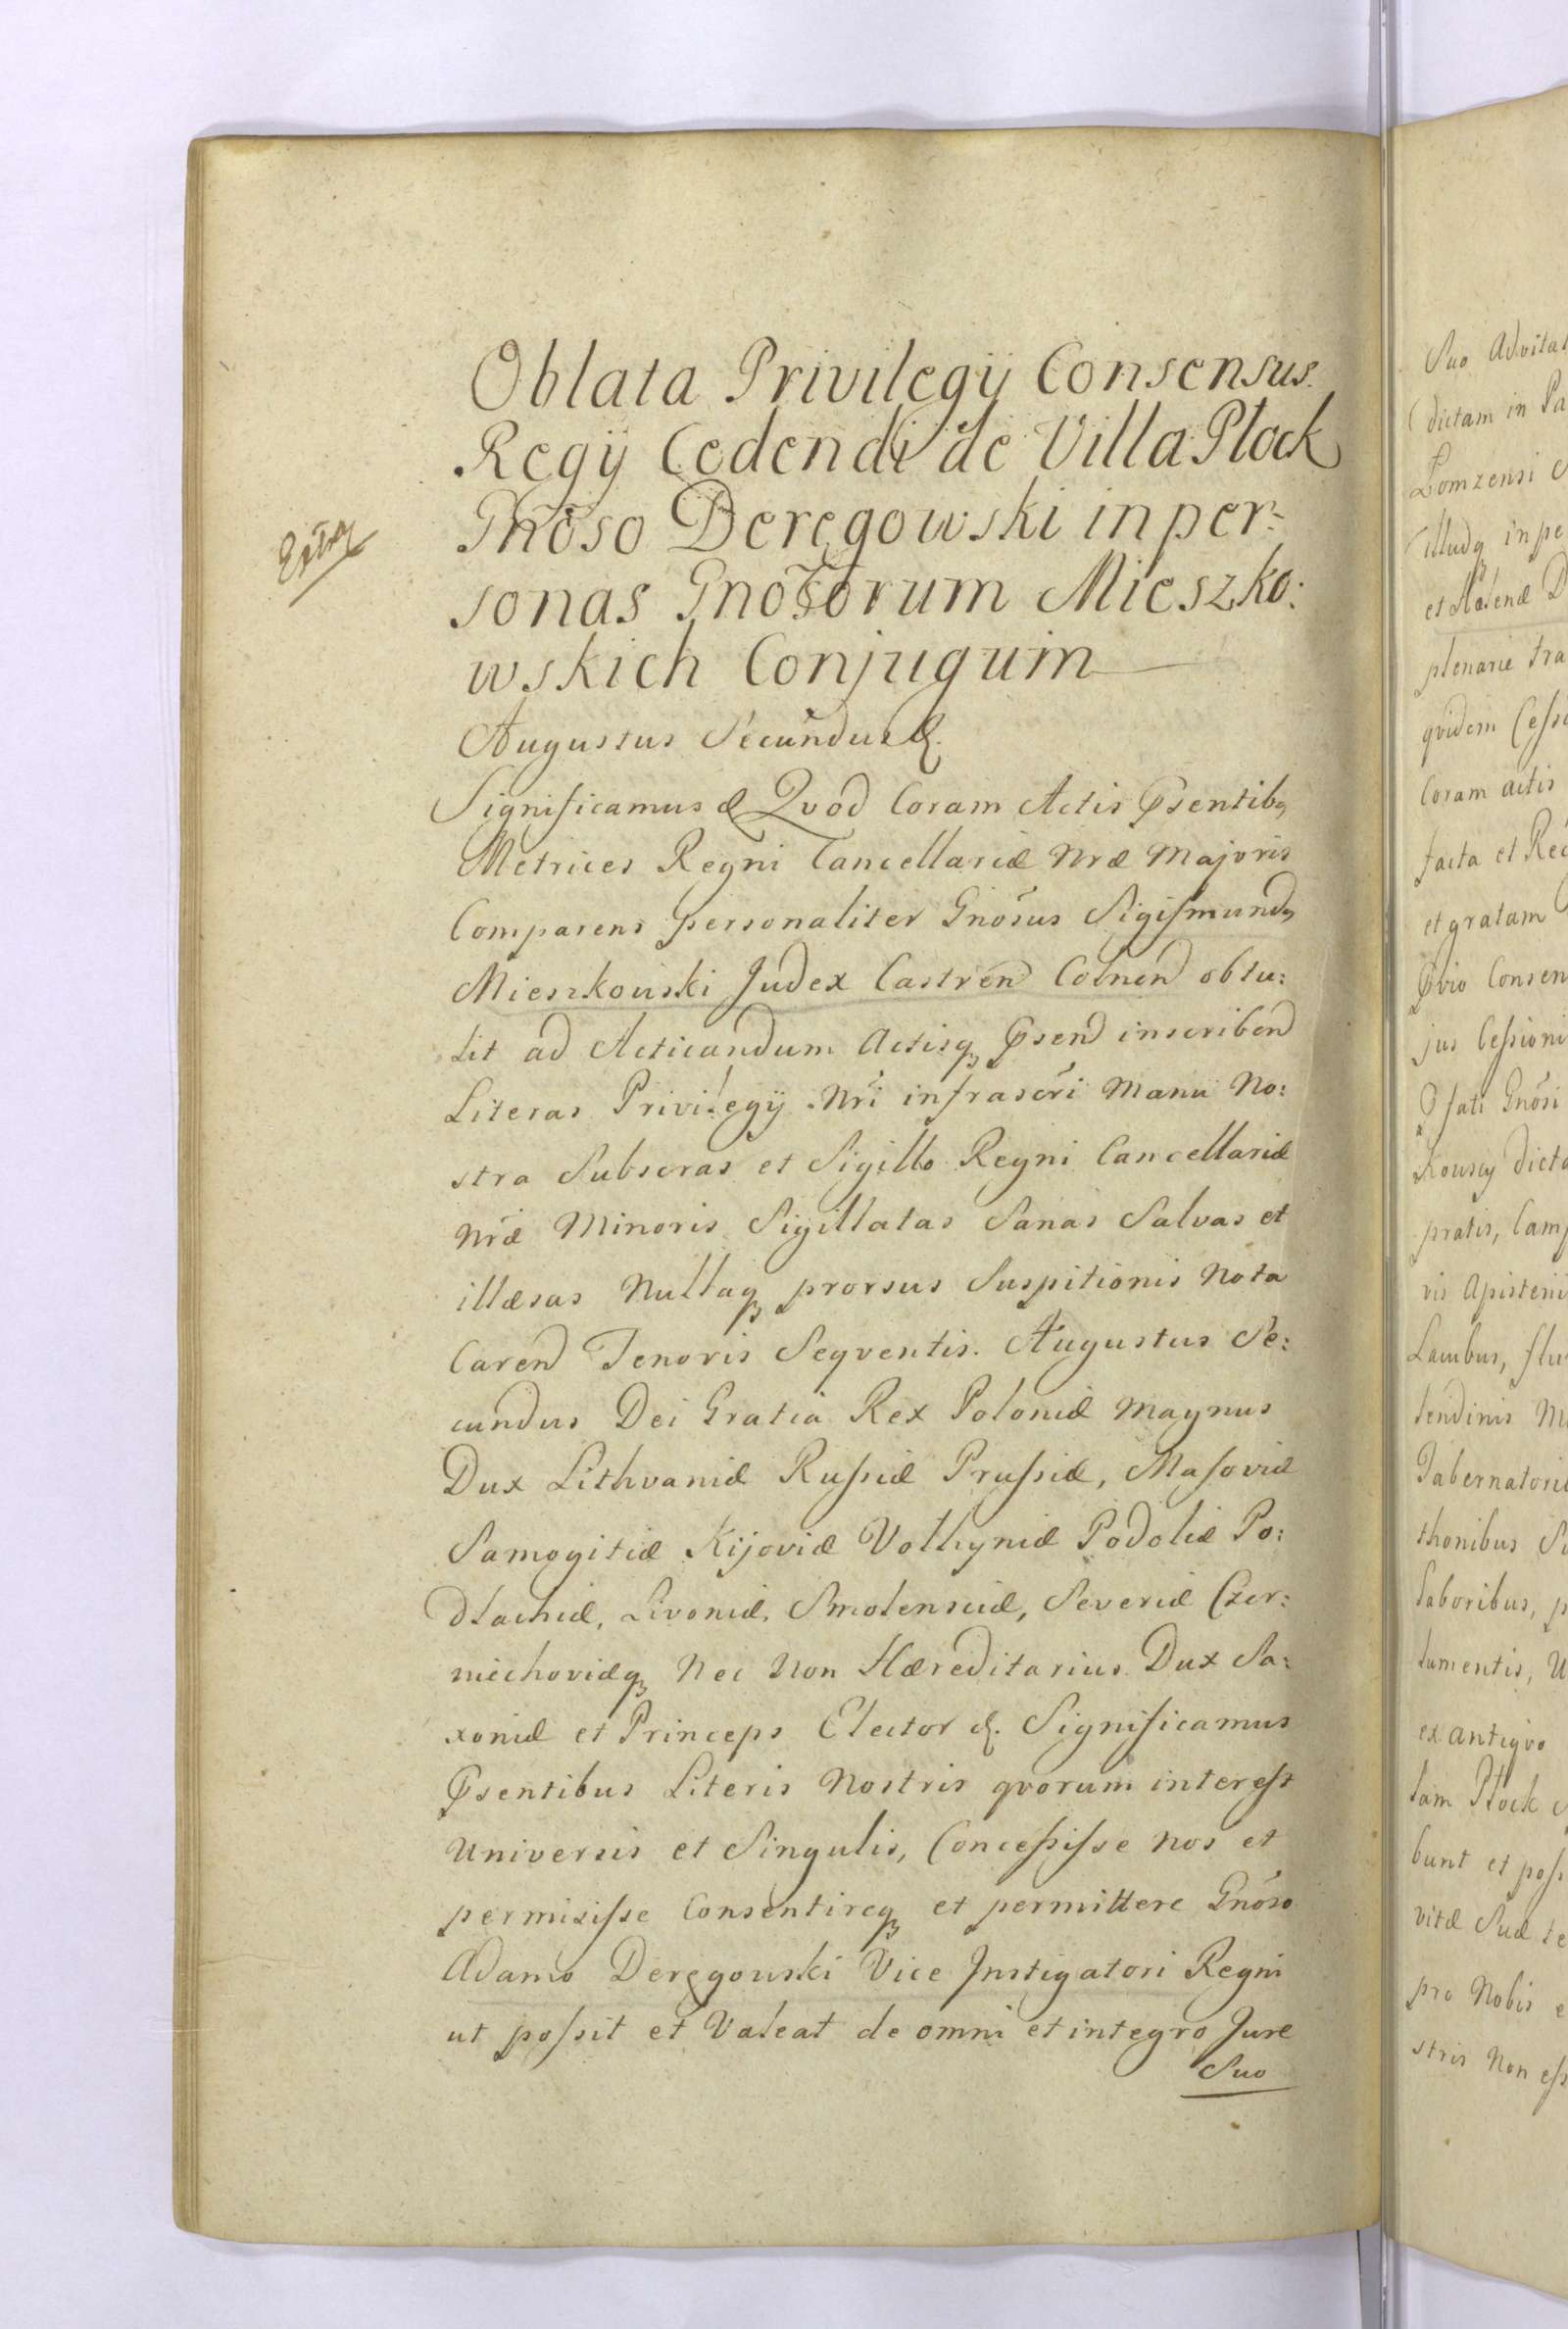 Oblata Privilegÿ Consensus
Regÿ Cedendi de Villa Płock
Gnõso Deręgowski in per:
sonas Gnõsorum Mieszko:
wskich Conjugum
Extra
Augustus Secundus &.
Significamus & Qvod Coram Actis Psentibq
Metrices Regni Cancellariæ Nræ Majoris
Comparens personaliter Gnõsus Sigismundq
Mieszkowski Judex Castren Colnen obtu:
lit ad Acticandum Actisq Psend inscribend
Literas Privilegÿ Nri infrascri Manu No:
stra Subscras et Sigillo Regni Cancellariæ
Nræ Minoris Sigillatas Sanas Salvas et
illæsas Nullaq prorsus Suspitionis Nota
Caren Tenoris Seqventis. Augustus Se:
cundus Dei Gratia Rex Poloniæ Magnus
Dux Lithvaniæ Russiæ Prussiæ, Masoviæ
Samogitiæ Kijoviæ Volhyniæ Podoliæ Po:
dlachiæ, Livoniæ, Smolensciæ, Severiæ Czer:
niechoviæq Nec Non Hæreditarius Dux Sa:
xoniæ et Princeps Elector &. Significamus
Psentibus Literis Nostris qvorum interest
Universis et Singulis, Concessisse nos et
permisisse Consentireq et permittere Gnõso
Adamo Deręgowski Vice Instigatori Regni
ut possit et Valeat de omni et integro Jure
Suo
Suo
dictam in
Łomzensi
illudq in
plenarie
qvidem
Coram actis
facta et
et gratam
Consen
jus Cessioni
Gnõsi
pratis,
vis
tendinis
Saboribus,
ex antiqvo
tam Płock
bunt et
vitæ Suæ
pro Nobis
stris Non